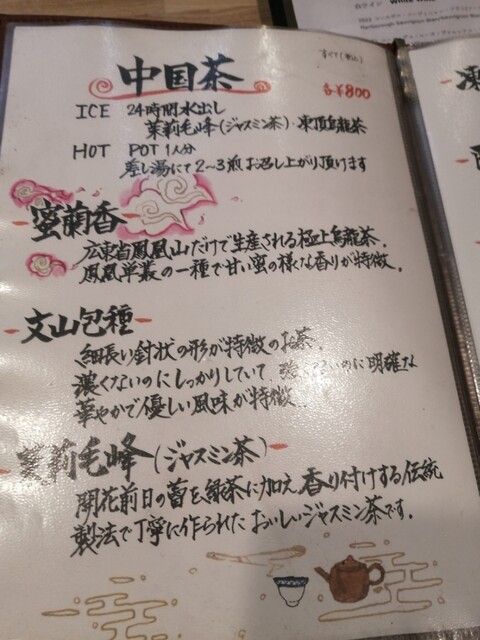 白ワイン White Wine
すべて(税込)
中国茶
各¥800
ICE 24時間水出し
茉莉毛峰(ジャスミン茶)・凍頂烏龍茶
HOT POT 1人分
差し湯にて2〜3煎お召し上がり頂けます
蜜蘭香
広東省鳳凰山だけで生産される極上烏龍茶。
鳳凰単叢の一種で甘い蜜の様な香りが特徴。
文山包種
細長い針状の形が特徴のお茶
濃くないのにしっかりしていて、強くないのに明確な
華やかで優しい風味が特徴。
茉莉毛峰(ジャスミン茶)
開花前日の蕾を緑茶に加え、香り付けする伝統
製法で丁寧に作られたおいしいジャスミン茶です。
凍